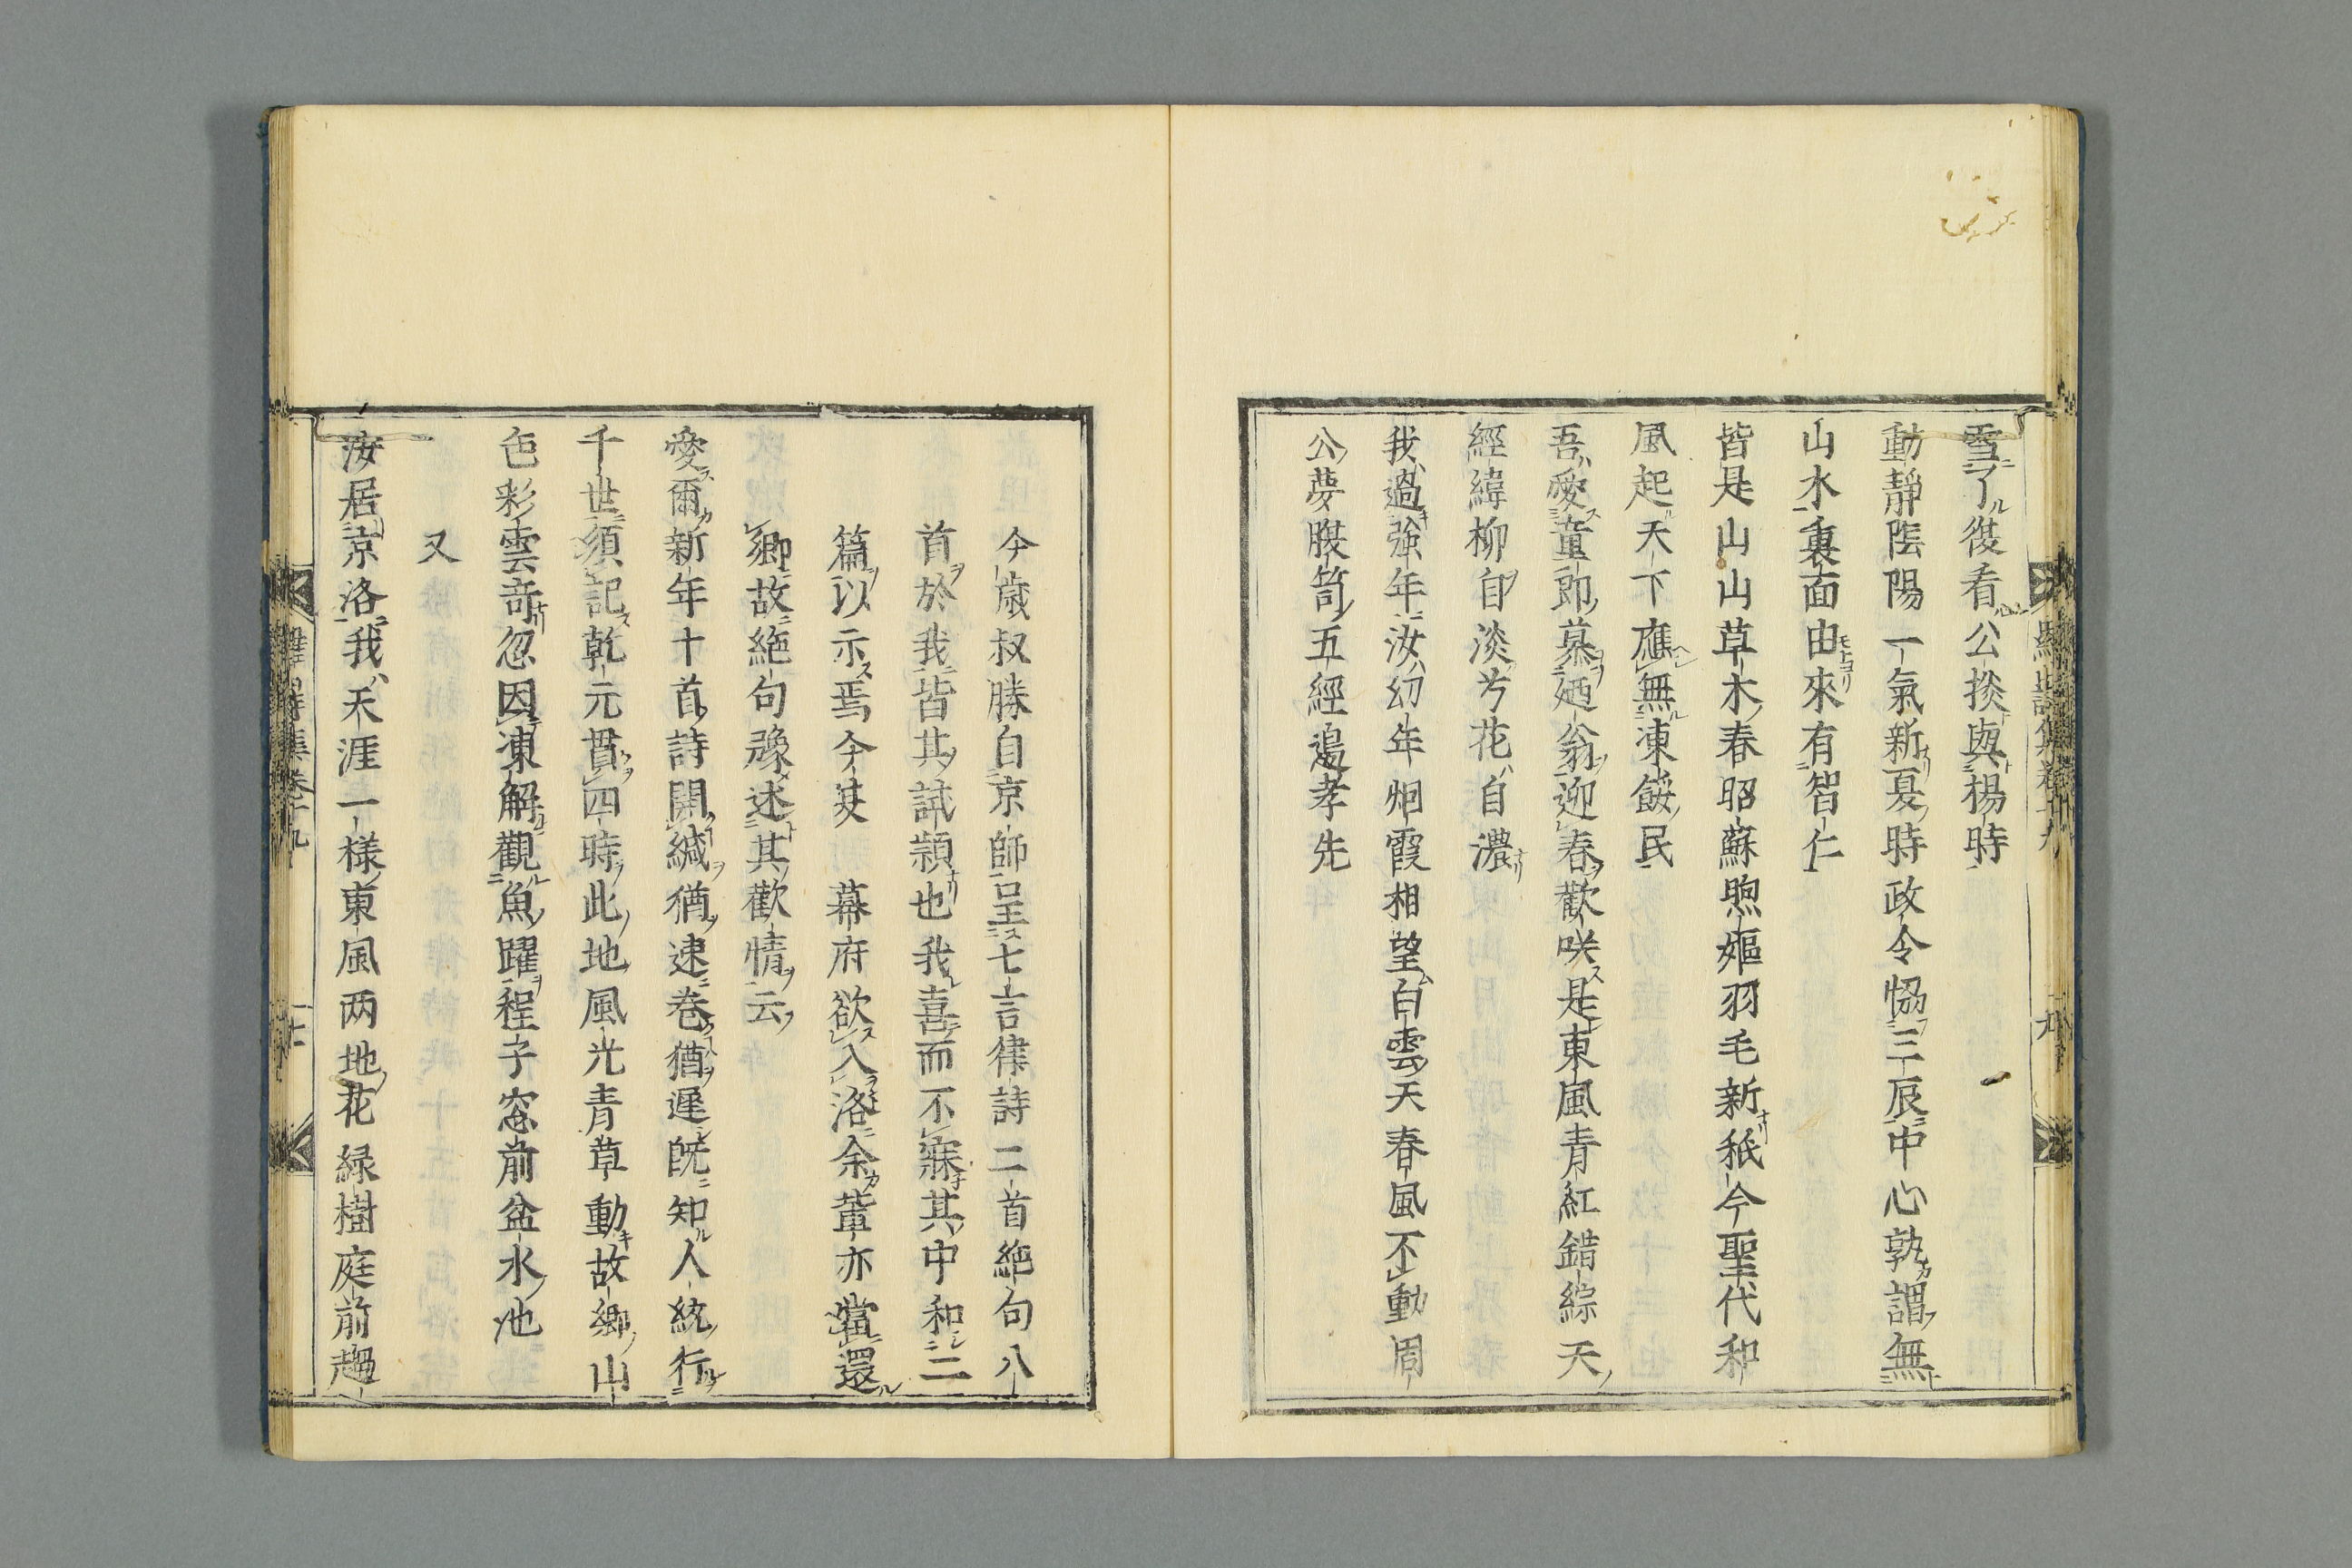 雪了後看公掞與楊時
動靜陰陽一氣新夏時政令恊三辰中心孰謂無
山水裏面由來有智仁
皆是山山草木春昭蘇煦嫗羽毛新秖今聖代和
風起天下應無凍餒民
吾愛童郎慕廼翁迎春歡咲是東風青紅錯綜天
經緯柳自淡兮花自濃
我過強年汝幻年烟霞相望白雲天春風不動周
公夢腹笥五經邊孝先
今歲叔勝自京師呈七言律詩二首絶句八
首於我皆其試頴也我喜而不寐其中和二
篇以示焉今茲 幕府欲入洛余輩亦當還
卿故絶句豫述其歡情云
愛爾新年十首詩開緘猶速巻猶遲旣知人統行
千世須記乾元貫四時此地風光青草動故郷山
色彩雲竒忽因凍解觀魚躍程子窓前盆水池
又
汝居京洛我天涯一樣東風两地花緑樹庭前趨
詩集巻十九